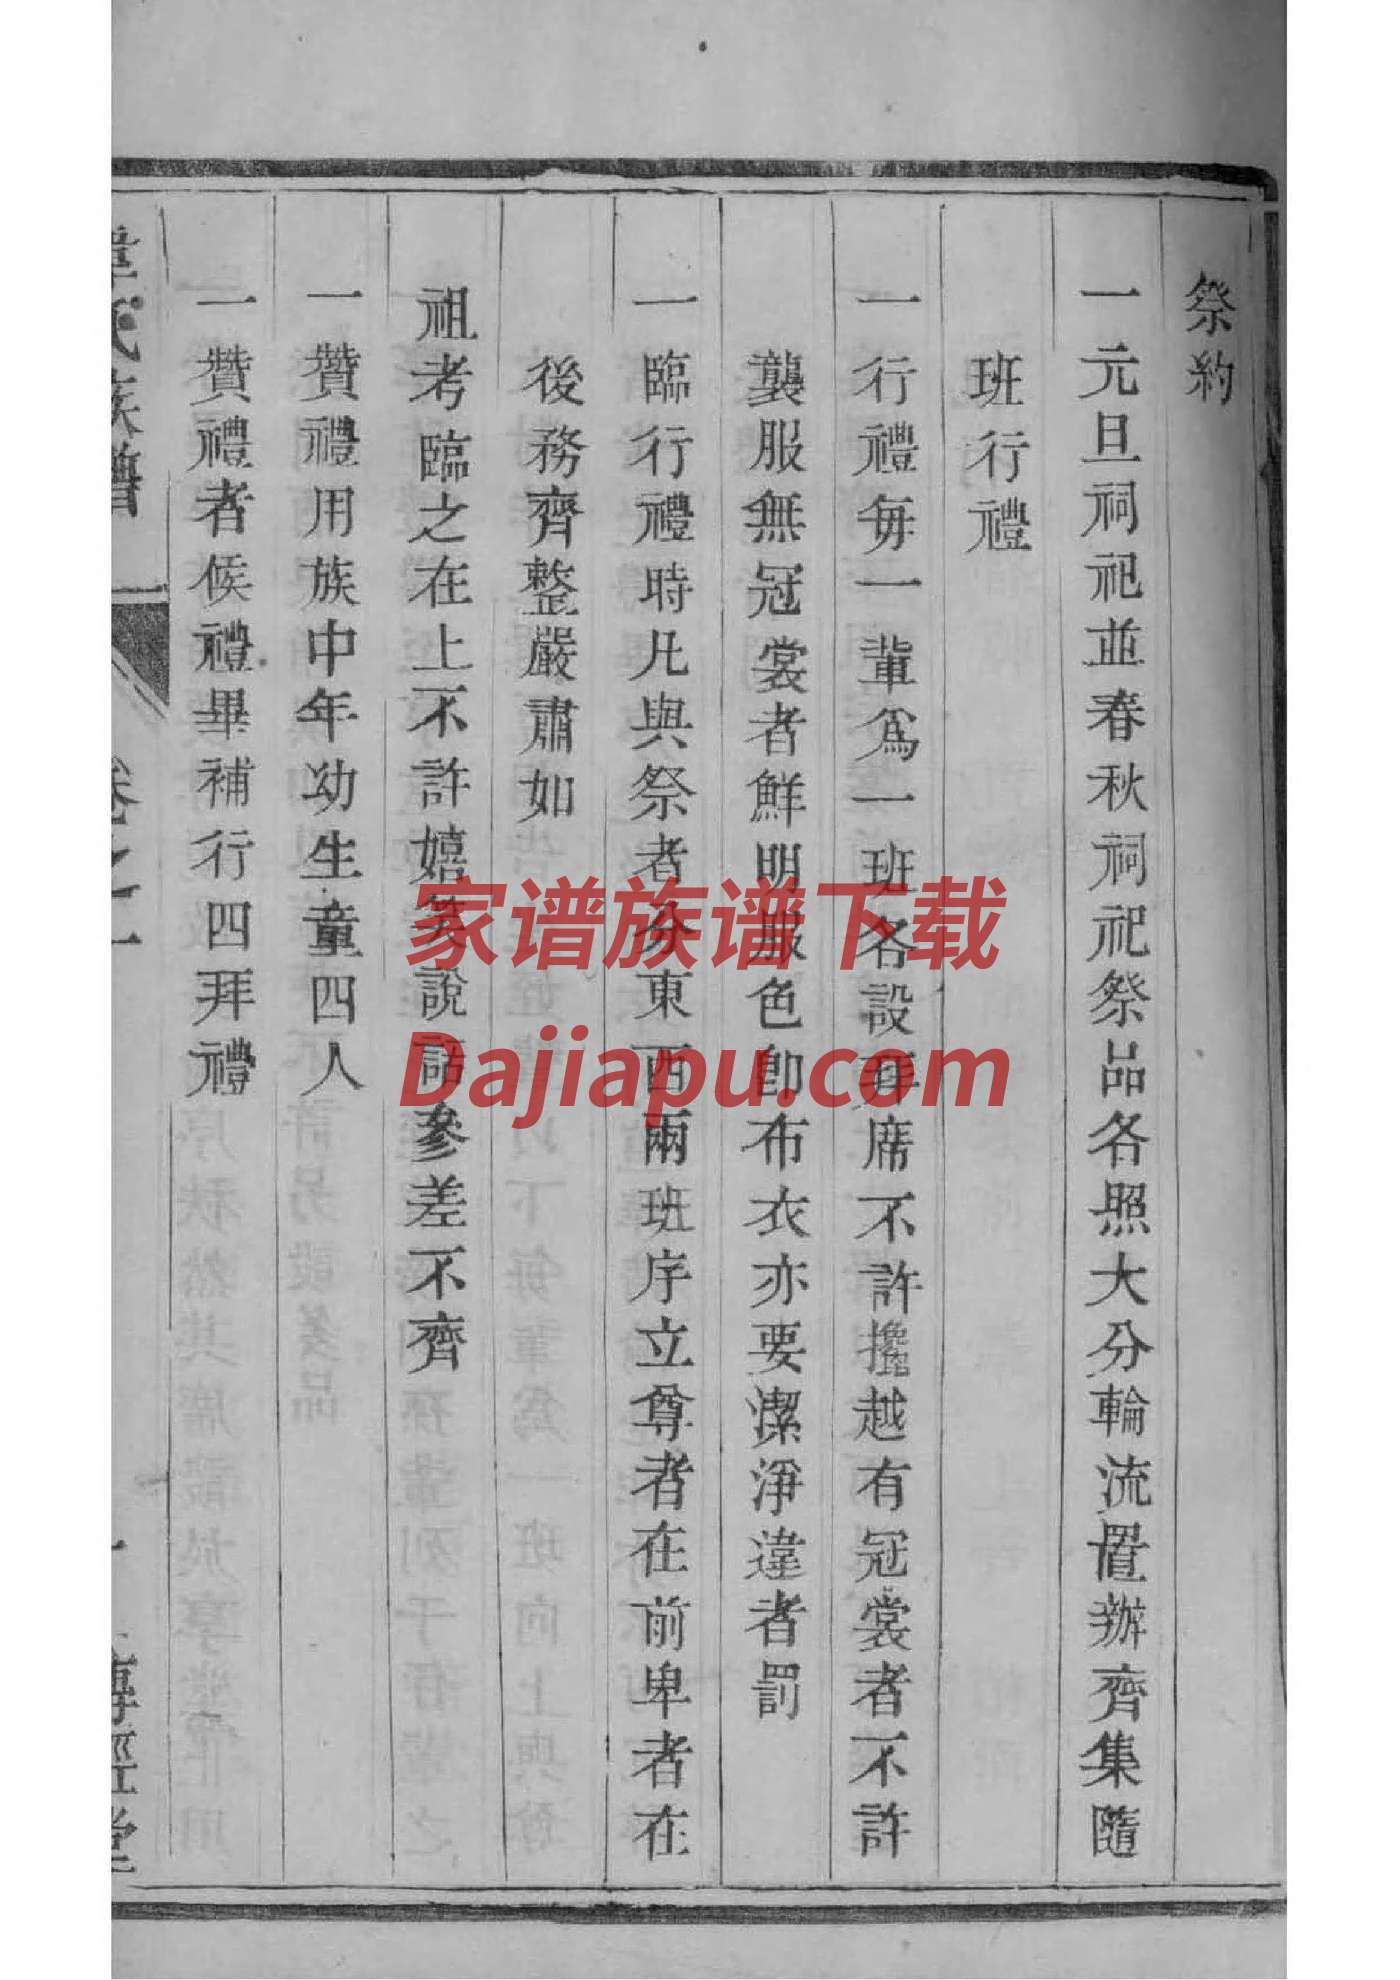 祭約
一元旦祠祀並春秋祠祀祭品各照大分輪流置辦齊集隨
班行禮
一行禮每一輩爲一班各設拜席不許攙越有冠裳者不許
襲服無冠裳者鮮明服色卽布衣亦要潔淨違者罰
一臨行禮時凡與祭者分東西兩班序立尊者在前卑者在
後務齊整嚴肅如
祖考臨之在上不許嬉笑說話參差不齊
一贊禮用族中年幼生童四人
一贊禮者候禮畢補行四拜禮
氏族譜 卷之一 傳經堂
家谱族谱下载
Dajiapu.com